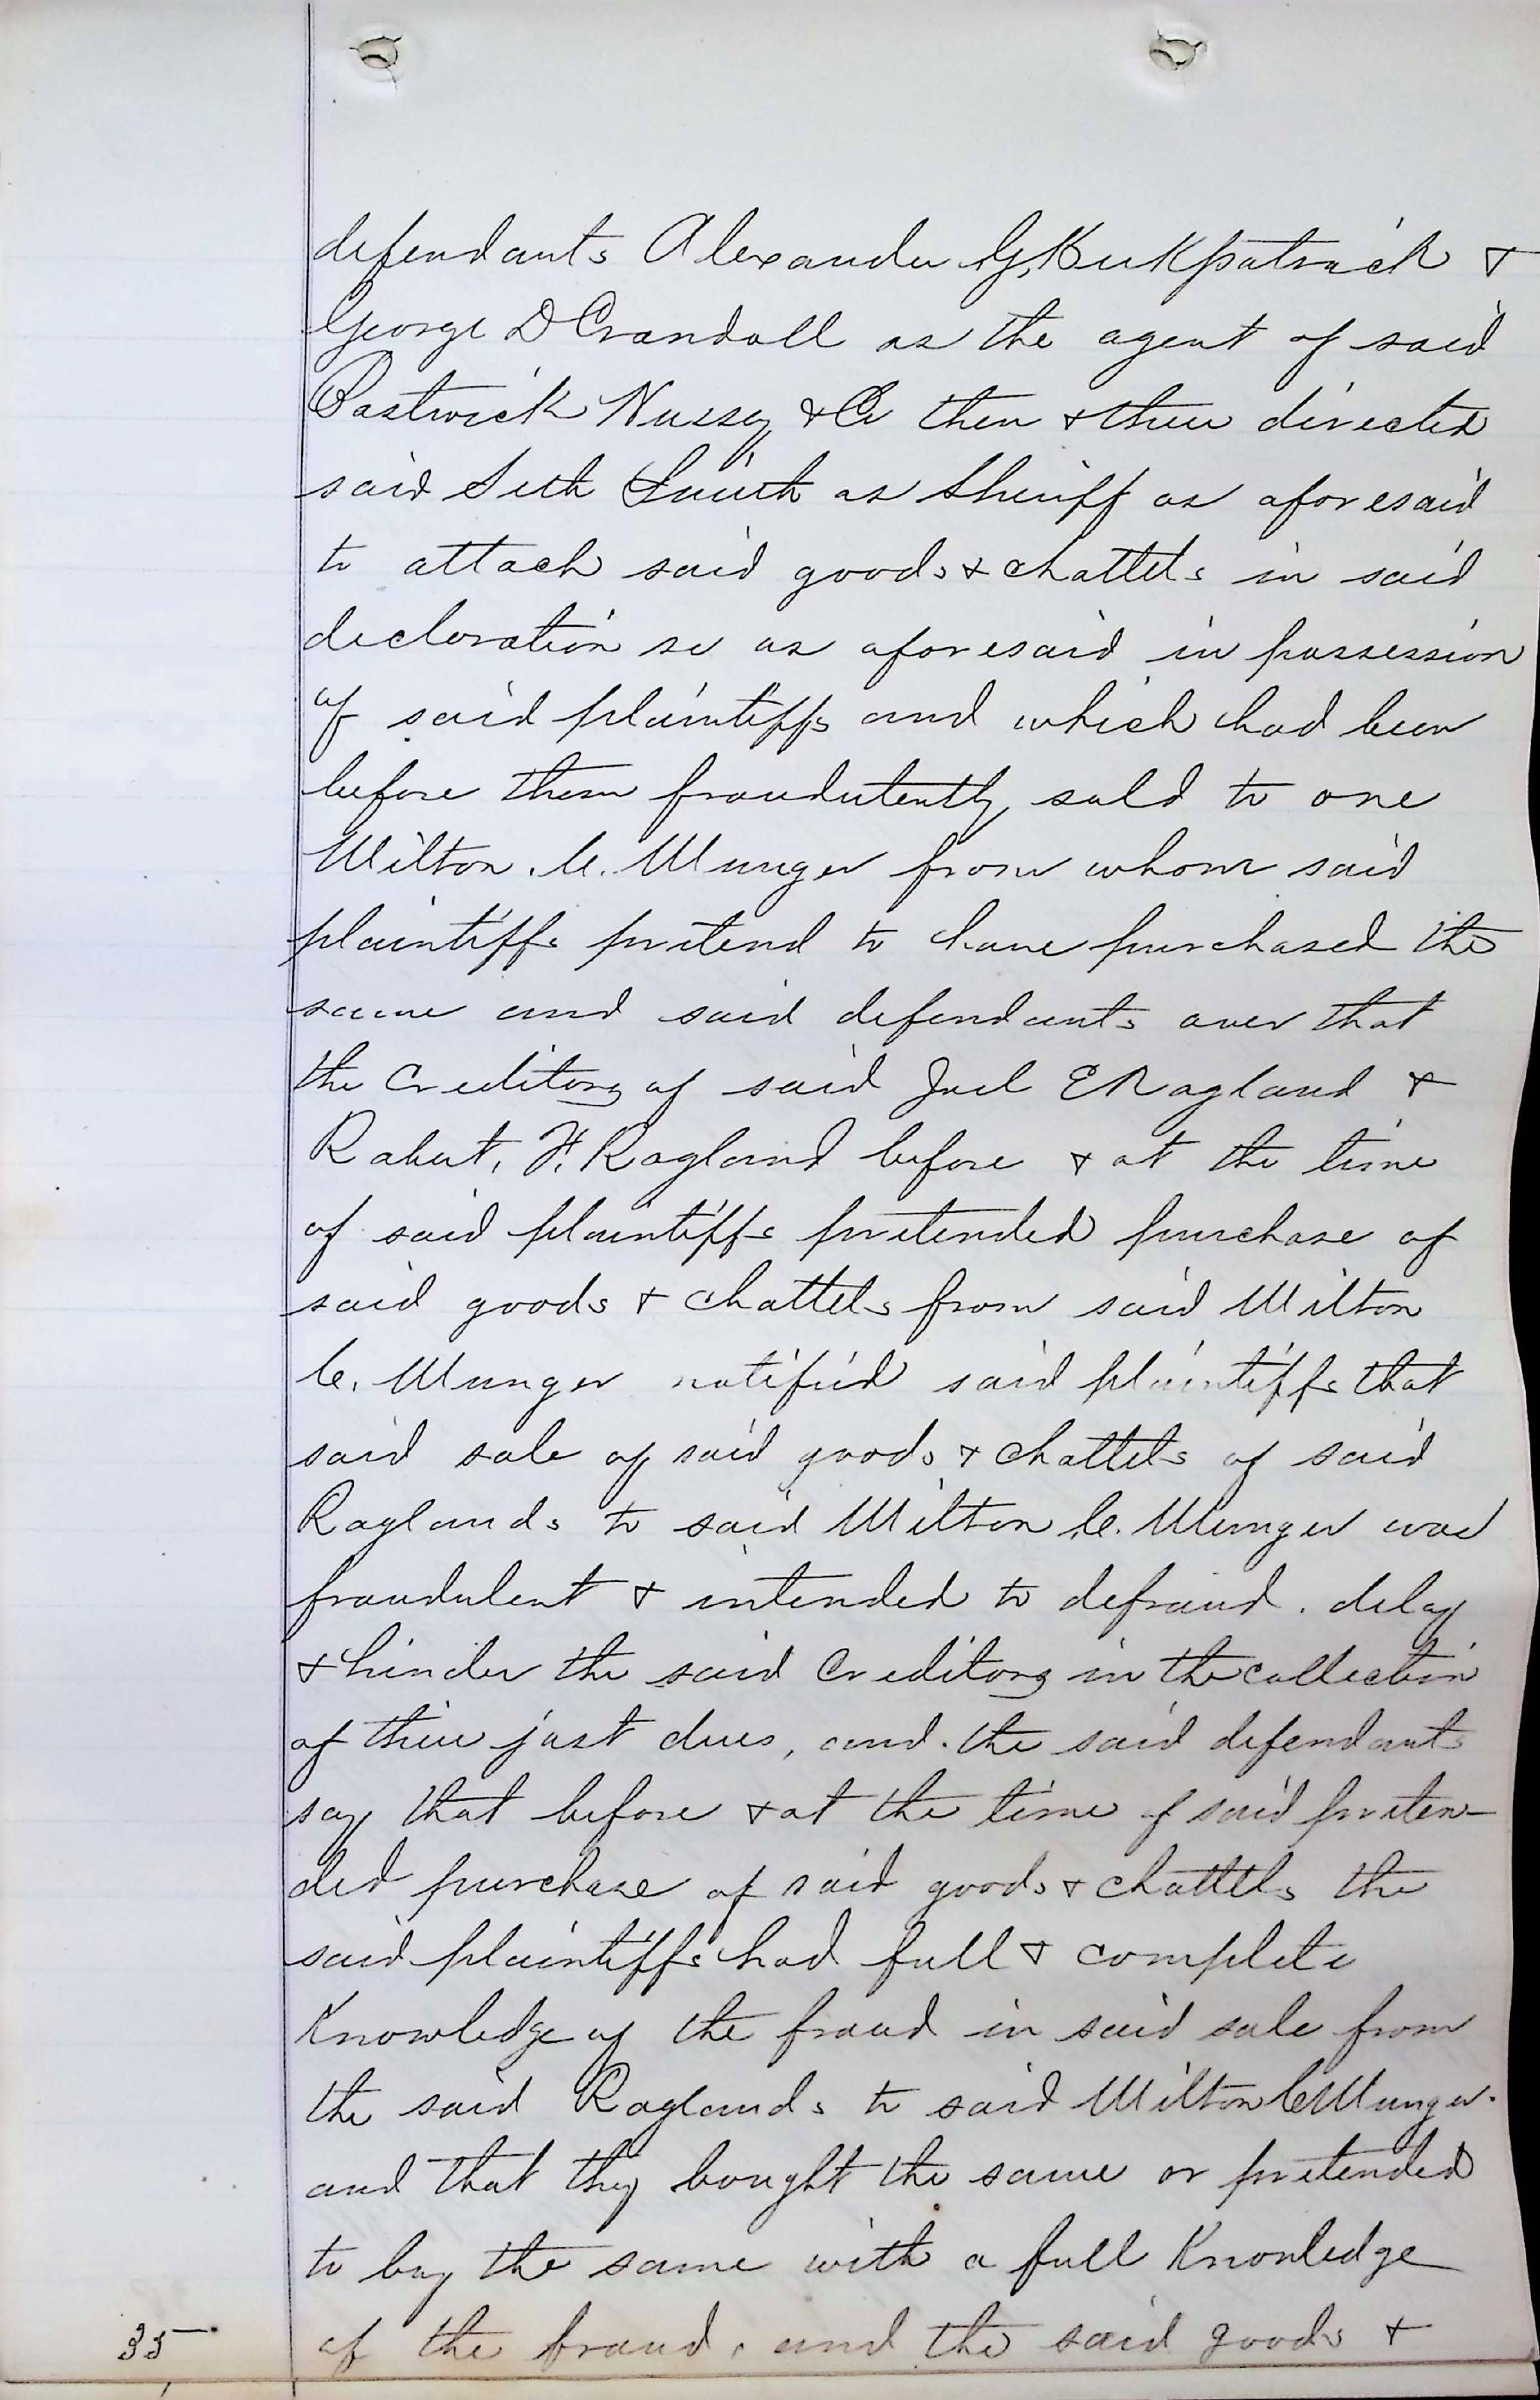 defendants Alexander G. Kirkpatrick &
George D Crandall as the agent of said
Bastwick Hussey & Co then & there directed
said Seth Smith as Sheriff as aforesaid
to attach said goods & chattels in said
declaration so as aforesaid in possession
of said plaintiffs and which had been
before them fraudutently sold to one
Milton C. Munger from whom said
plaintiffs pretend to have purchased the
same and said defendants aver that
the Creditors of said Joel E Ragland &
Robert. F. Ragland before & at the time
of said plaintiffs pretended purchase of
said goods & chattels from said Milton
C. Munger notified said plaintiffs that
said sale of said goods & chattels of said
Raglands to said Milton C. Munger was
fraudulent & intended to defraud. delay
& hinder the said Creditors in the collection
of their just dues, and the said defendants
say that before & at the time of said preten-
ded purchase of said goods & chattels the
said plaintiffs had full & complete
Knowledge of the fraud in said sale from
the said Raglands to said Milton C Munger.
and that they bought the same or pretended
to buy the same with a full Knowledge
of the fraud, and the said goods &
35